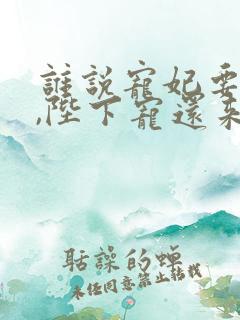 誰說寵妃要
,陛下寵還來
聒譟的蟬
未經同意禁止轉載